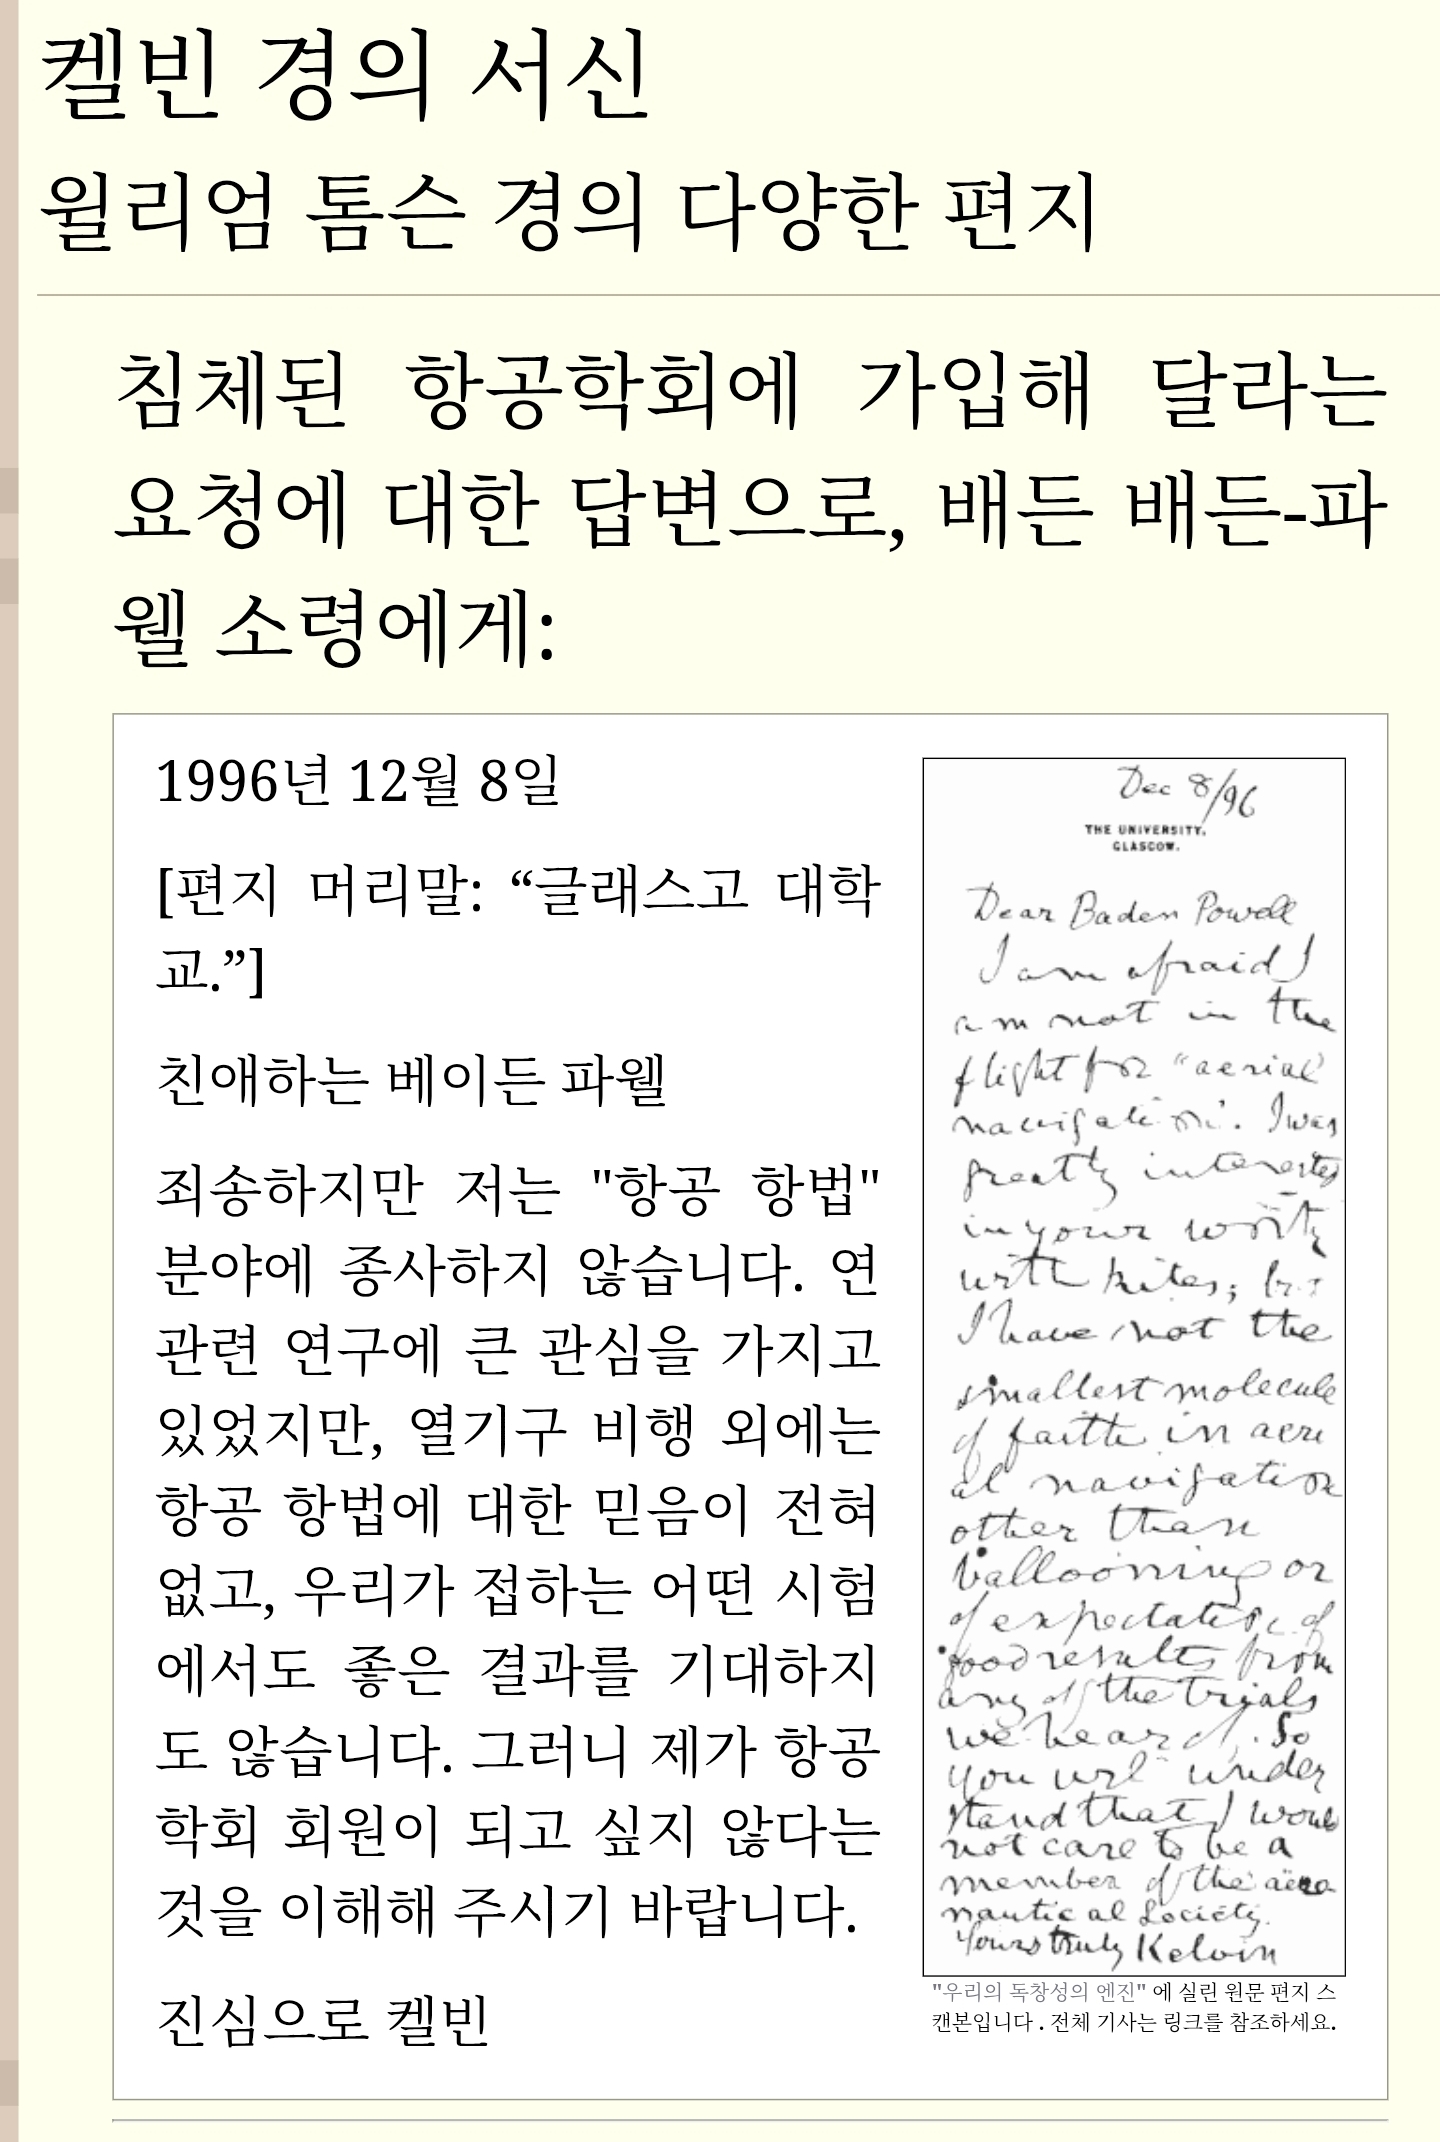 켈빈 경의 서신
윌리엄 톰슨 경의 다양한 편지
침체된 항공학회에 가입해 달라는
요청에 대한 답변으로, 배든 배든-파
웰 소령에게:
1996년 12월 8일
[편지 머리말: “글래스고 대학
교.”]
친애하는 베이든 파웰
죄송하지만 저는 "항공 항법"
분야에 종사하지 않습니다. 연
관련 연구에 큰 관심을 가지고
있었지만, 열기구 비행 외에는
항공 항법에 대한 믿음이 전혀
없고, 우리가 접하는 어떤 시험
에서도 좋은 결과를 기대하지
도 않습니다. 그러니 제가 항공
학회 회원이 되고 싶지 않다는
것을 이해해 주시기 바랍니다.
진심으로 켈빈
Dec 8/96
THE UNIVERSITY,
GLASGOW.
Dear Baden Powell
I am afraid I
am not in the
flight for “aerial
navigation”. I was
greatly interested
in your work
with kites; but
I have not the
smallest molecule
of faith in aeri
al navigation
other than
ballooning or
of expectation of
good results from
any of the trials
we hear of. So
you will under
stand that I would
not care to be a
member of the aëro
nautical Society.
Yours truly Kelvin
"우리의 독창성의 엔진" 에 실린 원문 편지 스
캔본입니다 . 전체 기사는 링크를 참조하세요.